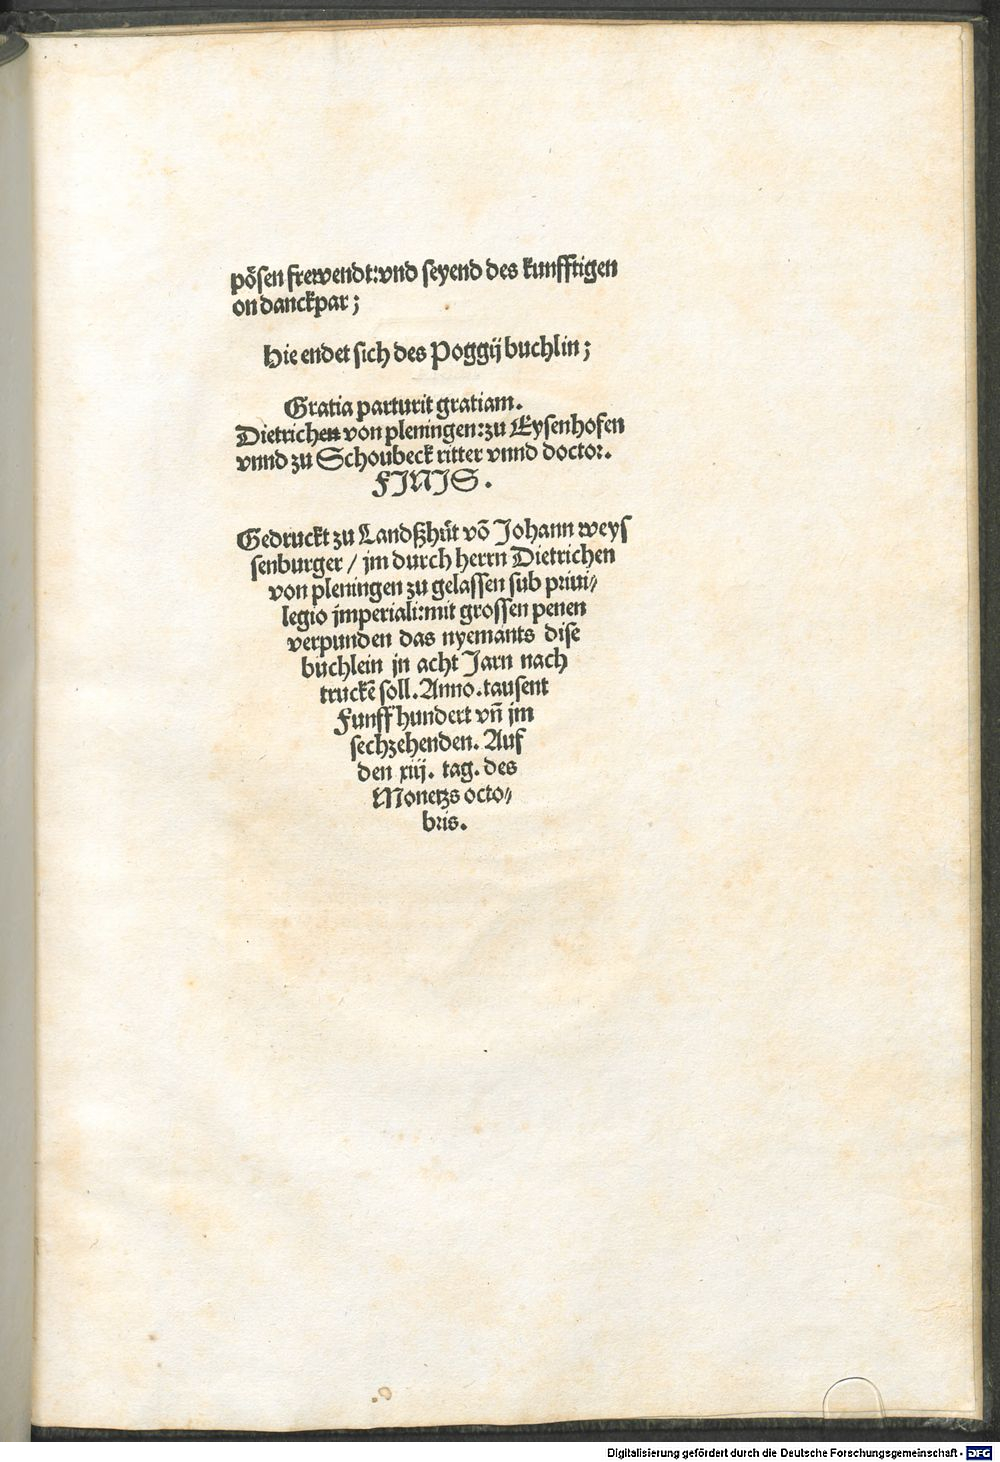 poͤsen frewendt:vnd seyend des kunfftigen
on danckpar;
Hie endet sich des Poggij buchlin;
Gratia parturit gratiam.
Dietrichen von pleningen:zu Eysenhofen
vnnd zu Schoubeck ritter vnnd doctor.
FINIS.
Gedruckt zu Landßhuͦt vō Johann weys
senburger / jm durch herrn Dietrichen
von pleningen zu gelassen sub priui⸗
legio jmperiali:mit grossen penen
verpunden das nyemants dise
buchlein jn acht Jarn nach
truckē soll. Anno. tausent
Funff hundert vn̄ jm
sechzehenden. Auf
den xiij. tag. des
Monetzs octo⸗
bris.
Digitalisierung gefördert durch die Deutsche Forschungsgemeinschaft - DFG